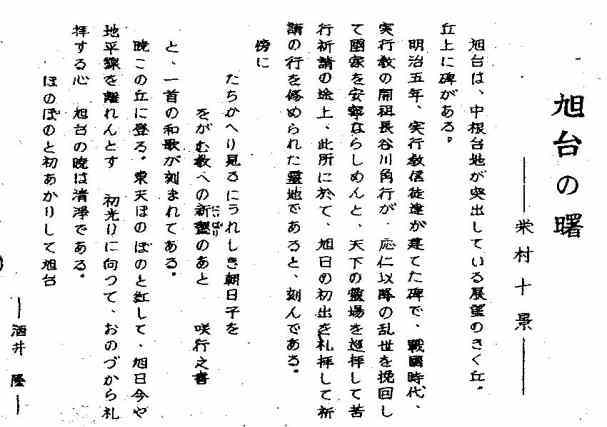 旭台の曙
――栄村十景――
旭台は、中根台地が突出している展望のきく丘。
丘上に碑がある。
明治五年、実行教信徒達が建てた碑で、戦國時代、
実行教の開祖長谷川角行が、応仁以降の乱世を挽回し
て國家を安寧ならしめんと、天下の霊場を巡拝して苦
行祈請の途上、此所に於て、旭日の初出を礼拝して祈
請の行を修められた霊地であると、刻んである。
傍に
たちかへり見るにうれしき朝日子を
をがむ教への新墾のあと　咲行之書
にいばり
と、一首の和歌が刻まれてある。
暁この丘に登る。東天ほのぼのと紅して、旭日今や
地平線を離れんとす　初光りに向つて、おのづから礼
拝する心　旭台の暁は清浄である。
ほのぼのと初あかりして旭台
――酒井　隆――